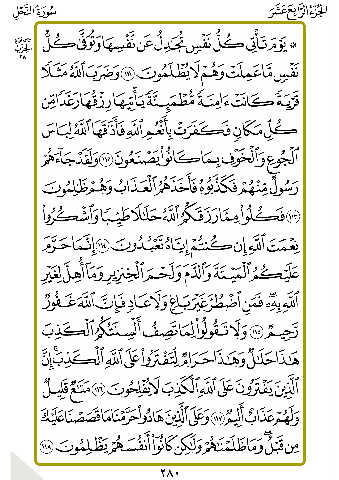 سُورَةُ النَّحْلِ
الجُزْءُ الرَّابِعَ عَشَرَ
۞ يَوْمَ تَأْتِي كُلُّ نَفْسٍ تُجَٰدِلُ عَن نَّفْسِهَا وَتُوَفَّىٰ كُلُّ
نَفْسٍ مَّا عَمِلَتْ وَهُمْ لَا يُظْلَمُونَ ١١١ وَضَرَبَ ٱللَّهُ مَثَلًا
قَرْيَةً كَانَتْ ءَامِنَةً مُّطْمَئِنَّةً يَأْتِيهَا رِزْقُهَا رَغَدًا مِّن
كُلِّ مَكَانٍ فَكَفَرَتْ بِأَنْعُمِ ٱللَّهِ فَأَذَٰقَهَا ٱللَّهُ لِبَاسَ
ٱلْجُوعِ وَٱلْخَوْفِ بِمَا كَانُوا۟ يَصْنَعُونَ ١١٢ وَلَقَدْ جَآءَهُمْ
رَسُولٌ مِّنْهُمْ فَكَذَّبُوهُ فَأَخَذَهُمُ ٱلْعَذَابُ وَهُمْ ظَٰلِمُونَ
١١٣ فَكُلُوا۟ مِمَّا رَزَقَكُمُ ٱللَّهُ حَلَٰلًا طَيِّبًا وَٱشْكُرُوا۟
نِعْمَتَ ٱللَّهِ إِن كُنتُمْ إِيَّاهُ تَعْبُدُونَ ١١٤ إِنَّمَا حَرَّمَ
عَلَيْكُمُ ٱلْمَيْتَةَ وَٱلدَّمَ وَلَحْمَ ٱلْخِنزِيرِ وَمَآ أُهِلَّ لِغَيْرِ
ٱللَّهِ بِهِۦ ۖ فَمَنِ ٱضْطُرَّ غَيْرَ بَاغٍ وَلَا عَادٍ فَإِنَّ ٱللَّهَ غَفُورٌ
رَّحِيمٌ ١١٥ وَلَا تَقُولُوا۟ لِمَا تَصِفُ أَلْسِنَتُكُمُ ٱلْكَذِبَ
هَٰذَا حَلَٰلٌ وَهَٰذَا حَرَامٌ لِّتَفْتَرُوا۟ عَلَى ٱللَّهِ ٱلْكَذِبَ ۚ إِنَّ
ٱلَّذِينَ يَفْتَرُونَ عَلَى ٱللَّهِ ٱلْكَذِبَ لَا يُفْلِحُونَ ١١٦ مَتَٰعٌ قَلِيلٌ
وَلَهُمْ عَذَابٌ أَلِيمٌ ١١٧ وَعَلَى ٱلَّذِينَ هَادُوا۟ حَرَّمْنَا مَا قَصَصْنَا عَلَيْكَ
مِن قَبْلُ ۖ وَمَا ظَلَمْنَٰهُمْ وَلَٰكِن كَانُوٓا۟ أَنفُسَهُمْ يَظْلِمُونَ ١١٨
٢٨٠